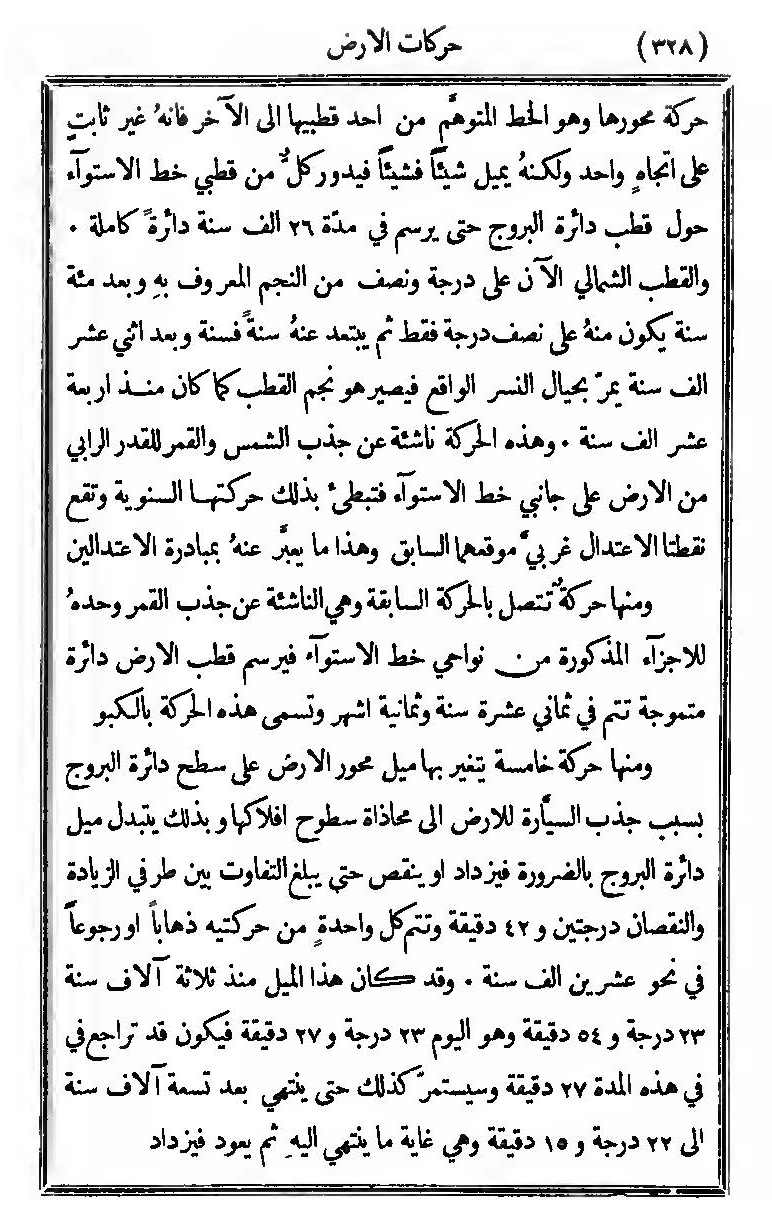 (٣٢٨) حركات الارض
حركة محورها وهو الخط المتوهَّم من احد قطبيها الى الآخر فانهُ غير ثابتٍ
على اتجاهٍ واحد ولكنهُ يميل شيئًا فشيئًا فيدور كلٌّ من قطبي خط الاستوآء
حول قطب دائرة البروج حتى يرسم في مدّة ٢٦ الف سنة دائرةً كاملة ٠
والقطب الشمالي الآن على درجة ونصف من النجم المعروف بهِ وبعد مئة
سنة يكون منهُ على نصف درجة فقط ثم يبتعد عنهُ سنةً فسنة وبعد اثني عشر
الف سنة يمرّ بحيال النسر الواقع فيصير هو نجم القطب كما كان منذ اربعة
عشر الف سنة ٠ وهذه الحركة ناشئة عن جذب الشمس والقمر للقدر الرابي
من الارض على جانبي خط الاستوآء فتبطئ بذلك حركتها السنوية وتقع
نقطتا الاعتدال غربيَّ موقعهما السابق وهذا ما يعبَّر عنهُ بمبادرة الاعتدالين
ومنها حركةٌ تتصل بالحركة السابقة وهي الناشئة عن جذب القمر وحدهُ
للاجزآء المذكورة من نواحي خط الاستوآء فيرسم قطب الارض دائرة
متموجة تتم في ثماني عشرة سنة وثمانية اشهر وتسمى هذه الحركة بالكبو
ومنها حركة خامسة يتغير بها ميل محور الارض على سطح دائرة البروج
بسبب جذب السيَّارة للارض الى محاذاة سطوح افلاكها وبذلك يتبدل ميل
دائرة البروج بالضرورة فيزداد او ينقص حتى يبلغ التفاوت بين طرفي الزيادة
والنقصان درجتين و ٤٢ دقيقة وتتم كل واحدةٍ من حركتيه ذهاباً او رجوعاً
في نحو عشرين الف سنة ٠ وقد كان هذا الميل منذ ثلاثة آلاف سنة
٢٣ درجة و ٥٤ دقيقة وهو اليوم ٢٣ درجة و ٢٧ دقيقة فيكون قد تراجع في
في هذه المدة ٢٧ دقيقة وسيستمرّ كذلك حتى ينتهي بعد تسعة آلاف سنة
الى ٢٢ درجة و ١٥ دقيقة وهي غاية ما ينتهي اليهِ ثم يعود فيزداد